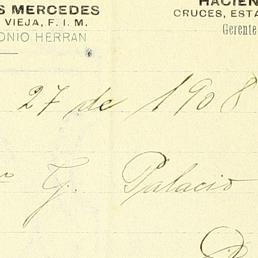 S MERCEDES
VIEJA, F. I. M.
ONIO HERRAN
HACIEN
CRUCES, ESTA
Gerente
27 de 1908
J. Palacio